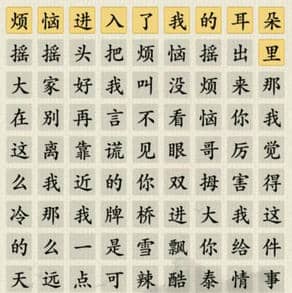 烦恼进入了我的耳朵
摇摇头把烦恼摇出里
大家好我叫没烦来那
在别再言不看恼你我
这离靠谎见眼哥厉觉
么我近的你双拇害得
冷那我牌桥进大我这
的么一是雪飘你给件
天远点可辣酷泰情事